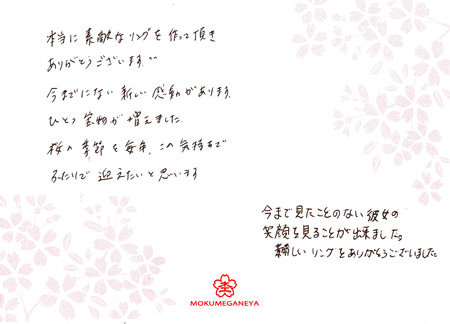 本当に素敵なリングを作って頂き
ありがとうございます^^
今までにない新しい感動があります。
ひとつ宝物が増えました。
桜の季節を毎年、この気持ちで
ふたりで迎えたいと思います
今まで見たことのない彼女の
笑顔を見ることが出来ました。
素晴しいリングをありがとうございました。
MOKUMEGANEYA